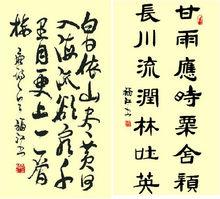 甘雨應時粟含穎
長川流潤林吐英
白日依山尽黄河
入海流欲窮千
里目更上一層
楼